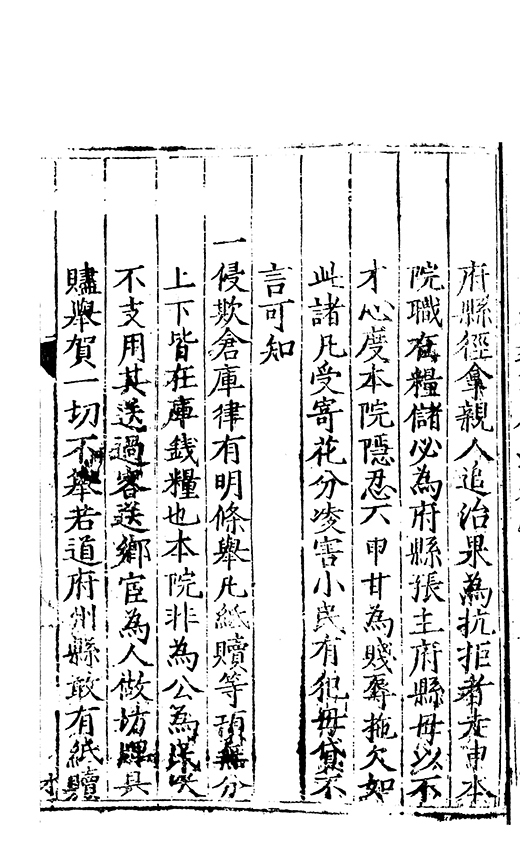 府縣徑拿親人追治果為抗拒者方申本
院職在糧儲必為府縣張主府縣毋以不
才心度本院隱忍不申甘為賤辱拖欠如
此諸凡受寄花分凌害小民有犯毋貸不
言可知
一侵欺倉庫律有明條舉凡紙贖等項無分
上下皆在庫錢糧也本院非為公為
不支用其送過客送鄉宦為人做坊牌具
賻舉賀一切不舉若道府州縣敢有紙贖